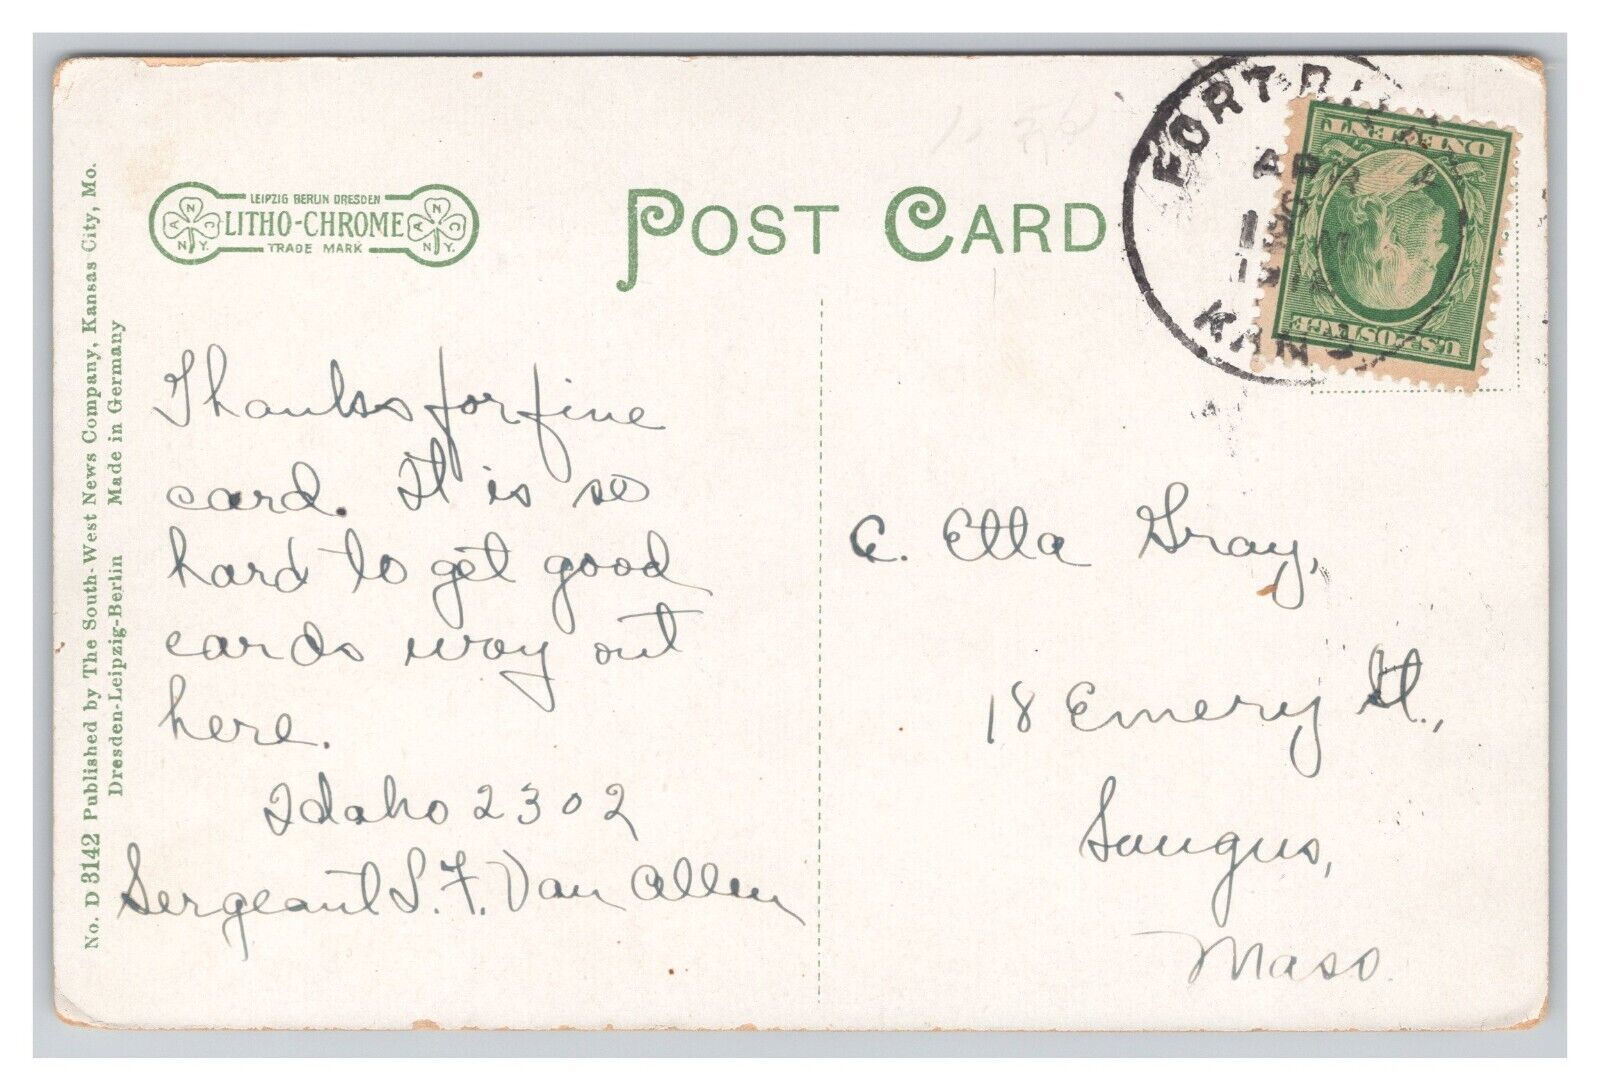 LEIPZIG BERLIN DRESDEN
LITHO-CHROME
TRADE MARK
N A C N.Y.
N A C N.Y.
POST CARD
FORT
APR
KANS
ONE CENT
U.S. POSTAGE
No. D 3142 Published by The South-West News Company, Kansas City, Mo.
Dresden-Leipzig-Berlin Made in Germany
Thanks for fine
card. It is so
hard to get good
cards way out
here.
Idaho 2302
Sergeant S. F. Van Allen
C. Etta Gray,
18 Emery St.,
Saugus,
Mass.